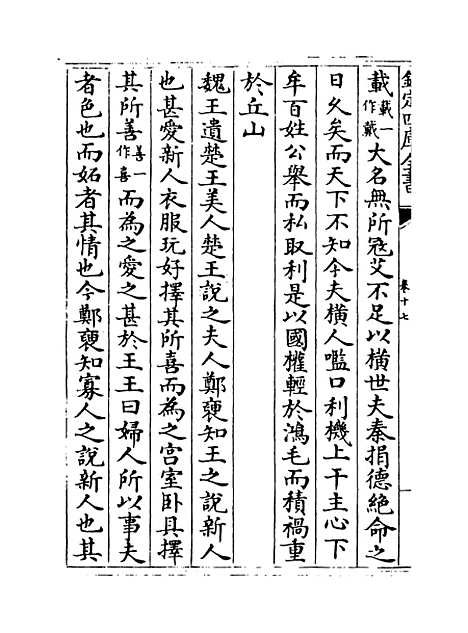 欽定四庫全書
卷十七
載載一作戴大名無所冦艾不足以横世夫秦捐德絶命之
日久矣而天下不知今夫横人嚂口利機上干主心下
牟百姓公舉而私取利是以國權輕於鴻毛而積禍重
於丘山
魏王遺楚王美人楚王說之夫人鄭褏知王之說新人
也甚愛新人衣服玩好擇其所喜而為之宫室卧具擇
其所善善一作喜而為之愛之甚於王王曰婦人所以事夫
者色也而妬者其情也今鄭褏知寡人之說新人也其